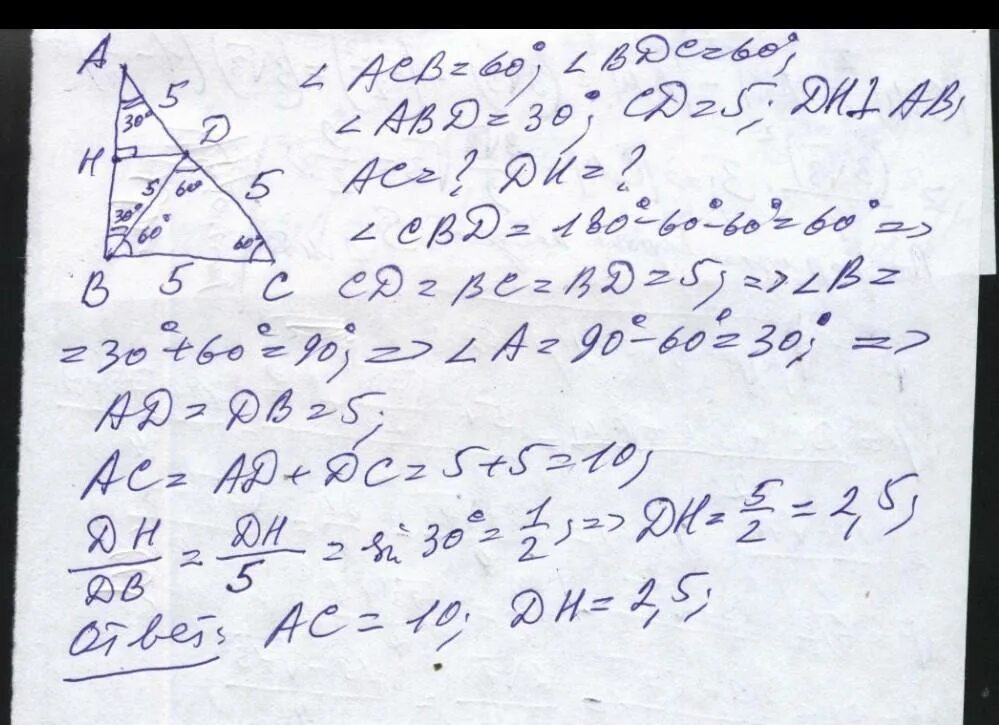 A
5
30°
D
H
5
60°
5
30°
60°
60°
B
5
C
∠ ACB = 60°; ∠ BDC = 60°;
∠ ABD = 30°; CD = 5; DH ⊥ AB;
AC = ? DH = ?
∠ CBD = 180° - 60° - 60° = 60° =>
CD = BC = BD = 5; => ∠ B =
= 30° + 60° = 90°; => ∠ A = 90° - 60° = 30°; =>
AD = DB = 5;
AC = AD + DC = 5 + 5 = 10;
DH/DB = DH/5 = sin 30° = 1/2; => DH = 5/2 = 2,5;
Ответ: AC = 10; DH = 2,5;